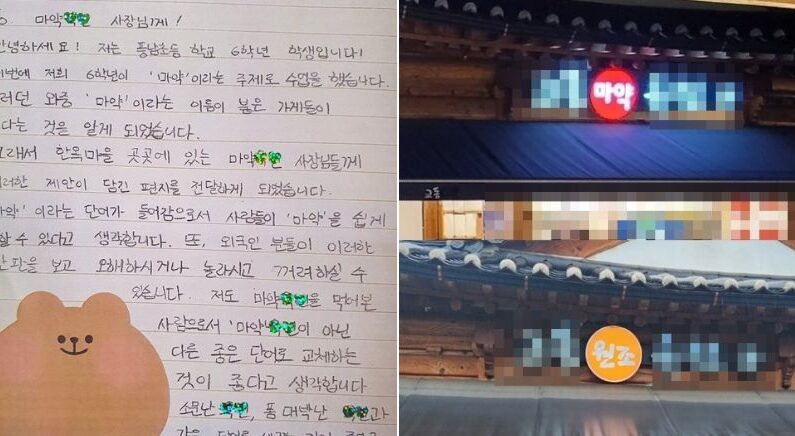 마약 사장님께!
안녕하세요! 저는 풍남초등 학교 6학년 학생입니다!
이번에 저희 6학년이 '마약'이라는 주제로 수업을 했습니다.
그러던 와중 '마약'이라는 이름이 붙은 가게들이
다는 것을 알게 되었습니다.
그래서 한옥마을 곳곳에 있는 마약 사장님들께
이러한 제안이 담긴 편지를 전달하게 되었습니다.
마약'이라는 단어가 들어감으로서 사람들이 '마약'을 쉽게
할 수 있다고 생각합니다. 또, 외국인 분들이 이러한
간판을 보고 오해하시거나 놀라시고 꺼려하실 수
있습니다. 저도 마약을 먹어본
사람으로서 '마약이 아닌
다른 좋은 단어로 교체하는
것이 좋다고 생각합니다
소문난, 풍 대박난 과
마약
교동
원조